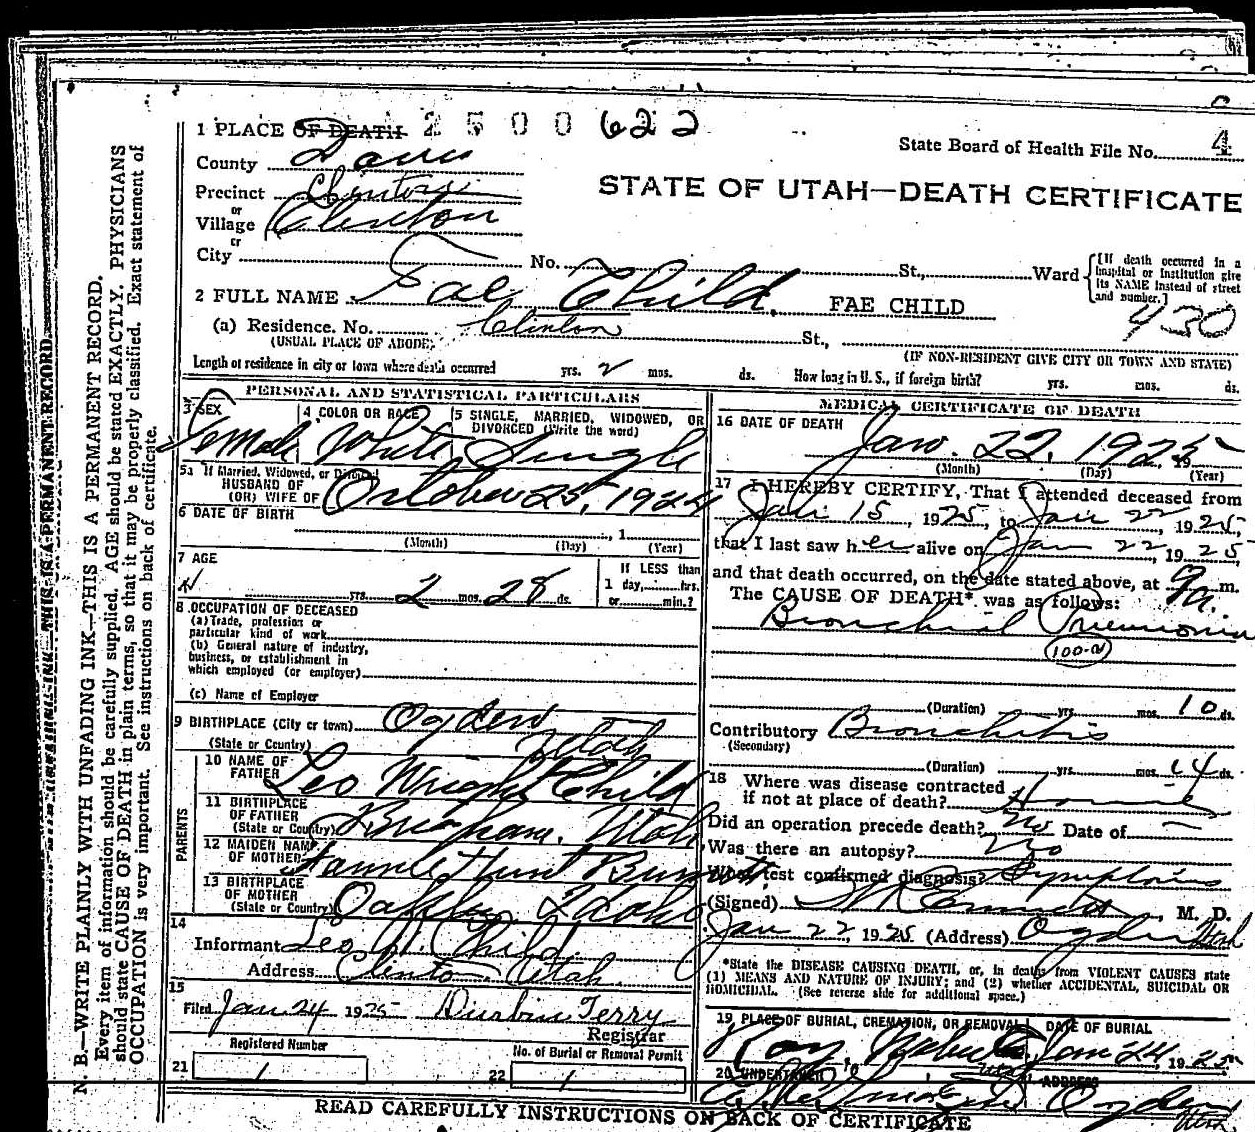 1 PLACE OF DEATH 2500622
State Board of Health File No. 4
County Davis
STATE OF UTAH—DEATH CERTIFICATE
Precinct Clinton
or
Village Clinton
or
City No. St., Ward
{If death occurred in a
hospital or institution give
its NAME instead of street
and number.]
2 FULL NAME Fae Child. FAE CHILD
430
(a) Residence. No. Clinton St.,
(USUAL PLACE OF ABODE)
(IF NON-RESIDENT GIVE CITY OR TOWN AND STATE)
Length of residence in city or town where death occurred yrs. 2 mos. ds. How long in U.S., if foreign birth? yrs. mos. ds.
PERSONAL AND STATISTICAL PARTICULARS
3 SEX 4 COLOR OR RACE 5 SINGLE, MARRIED, WIDOWED, OR
DIVORCED (Write the word)
Female White Single
5a If Married, Widowed, or Divorced
HUSBAND OF
(OR) WIFE OF
October 25, 1924
6 DATE OF BIRTH
, 1
(Month) (Day) (Year)
7 AGE
If LESS than
1 day, hrs.
or min.?
yrs. 2 mos. 28 ds.
8 OCCUPATION OF DECEASED
(a) Trade, profession or
particular kind of work
(b) General nature of industry,
business, or establishment in
which employed (or employer)
(c) Name of Employer
9 BIRTHPLACE (City or town) Ogden
(State or Country) Utah
PARENTS
10 NAME OF
FATHER Leo Wright Child
11 BIRTHPLACE
OF FATHER
(State or Country) Brigham, Utah
12 MAIDEN NAME
OF MOTHER Fannie Hunt
13 BIRTHPLACE
OF MOTHER
(State or Country) Oakley Idaho
14
Informant Leo W. Child
Address Clinton Utah
15
Filed Jan 24 1925 Durbin Terry
Registrar
Registered Number
21 1
No. of Burial or Removal Permit
22 1
MEDICAL CERTIFICATE OF DEATH
16 DATE OF DEATH
Jan. 22, 1925 19
(Month) (Day) (Year)
17 I HEREBY CERTIFY, That I attended deceased from
Jan 15, 1925, to Jan 22, 1925,
that I last saw her alive on Jan 22, 1925,
and that death occurred, on the date stated above, at 9 a. m.
The CAUSE OF DEATH* was as follows:
Bronchial Pneumonia
100-a
(Duration) yrs. mos. 10 ds.
Contributory Bronchitis
(Secondary)
(Duration) yrs. mos. 14 ds.
18 Where was disease contracted
if not at place of death? Home
Did an operation precede death? No Date of —
Was there an autopsy? No
What test confirmed diagnosis? Symptoms
(Signed) , M. D.
Jan 22, 1925 (Address) Ogden Utah
*State the DISEASE CAUSING DEATH, or, in deaths from VIOLENT CAUSES state
(1) MEANS AND NATURE OF INJURY; and (2) whether ACCIDENTAL, SUICIDAL OR
HOMICIDAL. (See reverse side for additional space.)
19 PLACE OF BURIAL, CREMATION, OR REMOVAL DATE OF BURIAL
Jan 24 1925
20 UNDERTAKER ADDRESS
Ogden
Utah
READ CAREFULLY INSTRUCTIONS ON BACK OF CERTIFICATE
N. B.—WRITE PLAINLY WITH UNFADING INK—THIS IS A PERMANENT RECORD.
Every item of information should be carefully supplied. AGE should be stated EXACTLY. PHYSICIANS
should state CAUSE OF DEATH in plain terms, so that it may be properly classified. Exact statement of
OCCUPATION is very important. See instructions on back of certificate.